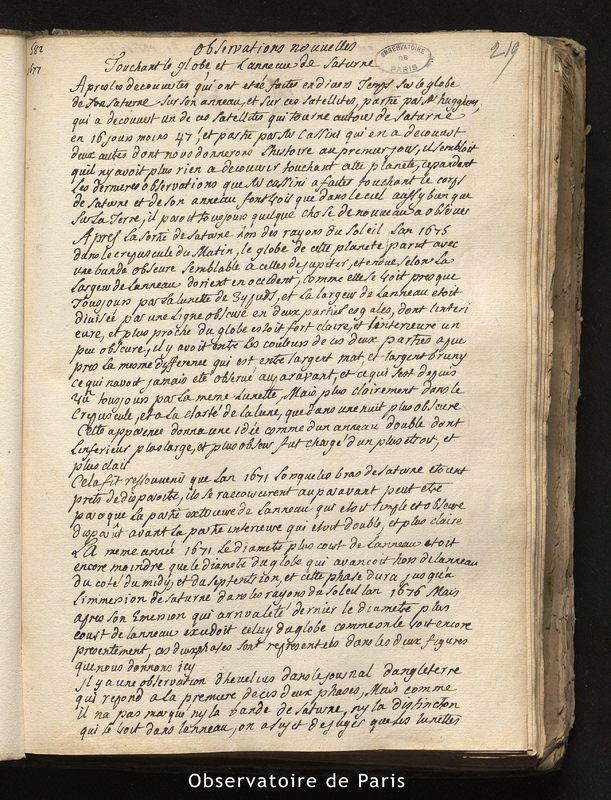 582
1677
219
OBSERVATOIRE DE PARIS
Observations nouvelles
Touchant le globe et Lanneau de Saturne
Apres les decouvertes qui ont eté faites en divers Temps sur le globe
de Saturne sur son anneau, et sur ces satellites, partie par Mr huggens,
qui a decouvert un de ces satellites qui tourne autour de saturne
en 16 jours moins 47', et partie par Mr Cassini qui en a decouvert
deux autres dont nous donnerons l'histoire au premier jour, il sembloit
quil ny avoit plus rien a decouvrir touchant cette planete, cependant
Les dernieres observations que Mr Cassini a faites touchant le corps
de saturne et de son anneau font voir que dans le ciel aussy bien que
sur La Terre, il paroit toujours quelque chose de nouveau a observer
Apres La sortie de saturne hors des rayons du soleil Lan 1675
dans le crepuscule du Matin, le globe de cette planete parut avec
une bande obscure semblable a celles de jupiter, etendue selon La
Largeur de Lanneau dorient en occident, comme elle se voit presque
Toujours par la lunette de 34 pieds, et La largeur de Lanneau etoit
divisée par une Ligne obscure en deux parties egales, dont l'interi
eure, et plus proche du globe estoit fort claire, et l'exterieure un
peu obscure, il y avoit entre les couleurs de ces deux parties a peu
pres la mesme difference qui est entre largent mat, et largent bruny
ce qui navoit jamais eté observé auparavant, et ce qui sest depuis
vû toujours par la meme Lunette, Mais plus clairement dans le
Crepuscule, et a la clarté de la lune, que dans une nuit plus obscure
Cette apparence donna une idée comme dun anneau double dont
Linferieur plus large, et plus obscur fut chargé dun plus etroit, et
plus clair
Cela fit ressouvenir que Lan 1671 Lorsque les bras de saturne etoient
prets de disparoitre, ils se raccourcirent auparavant peut etre
parceque La partie exterieure de Lanneau qui etoit simple et obscure
disparût avant La partie interieure qui etoit double, et plus claire
LA meme année 1671 Le diametre plus court de Lanneau etoit
encore moindre que le diametre du globe qui avancoit hors de lanneau
du coté du midy, et du septentrion, et cette phase dura jusqua
Limmersion de saturne dans les rayons du soleil lan 1676 Mais
apres son Emersion qui arriva leté dernier le diametre plus
court de lanneau excedoit celuy du globe comme on le voit encore
presentement, ces deux phases sont representées dans les deux figures
que nous donnons icy
Il y a une observation dhevelius dans le journal dangleterre
qui repond a la premiere de ces deux phases, Mais comme
il na pas marqué ny la bande de saturne, ny la distinction
qui se voit dans lanneau, on a sujet de juger que ses lunettes
Observatoire de Paris